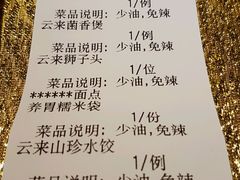 1/例
菜品说明: 少油,免辣
云来菌香煲
1/例
菜品说明: 少油,免辣
云来狮子头
1/位
菜品说明: 少油,免辣
******面点
养胃糯米袋
1/份
菜品说明: 少油,免辣
云来山珍水饺
1/例
菜品说明: 少油,免辣